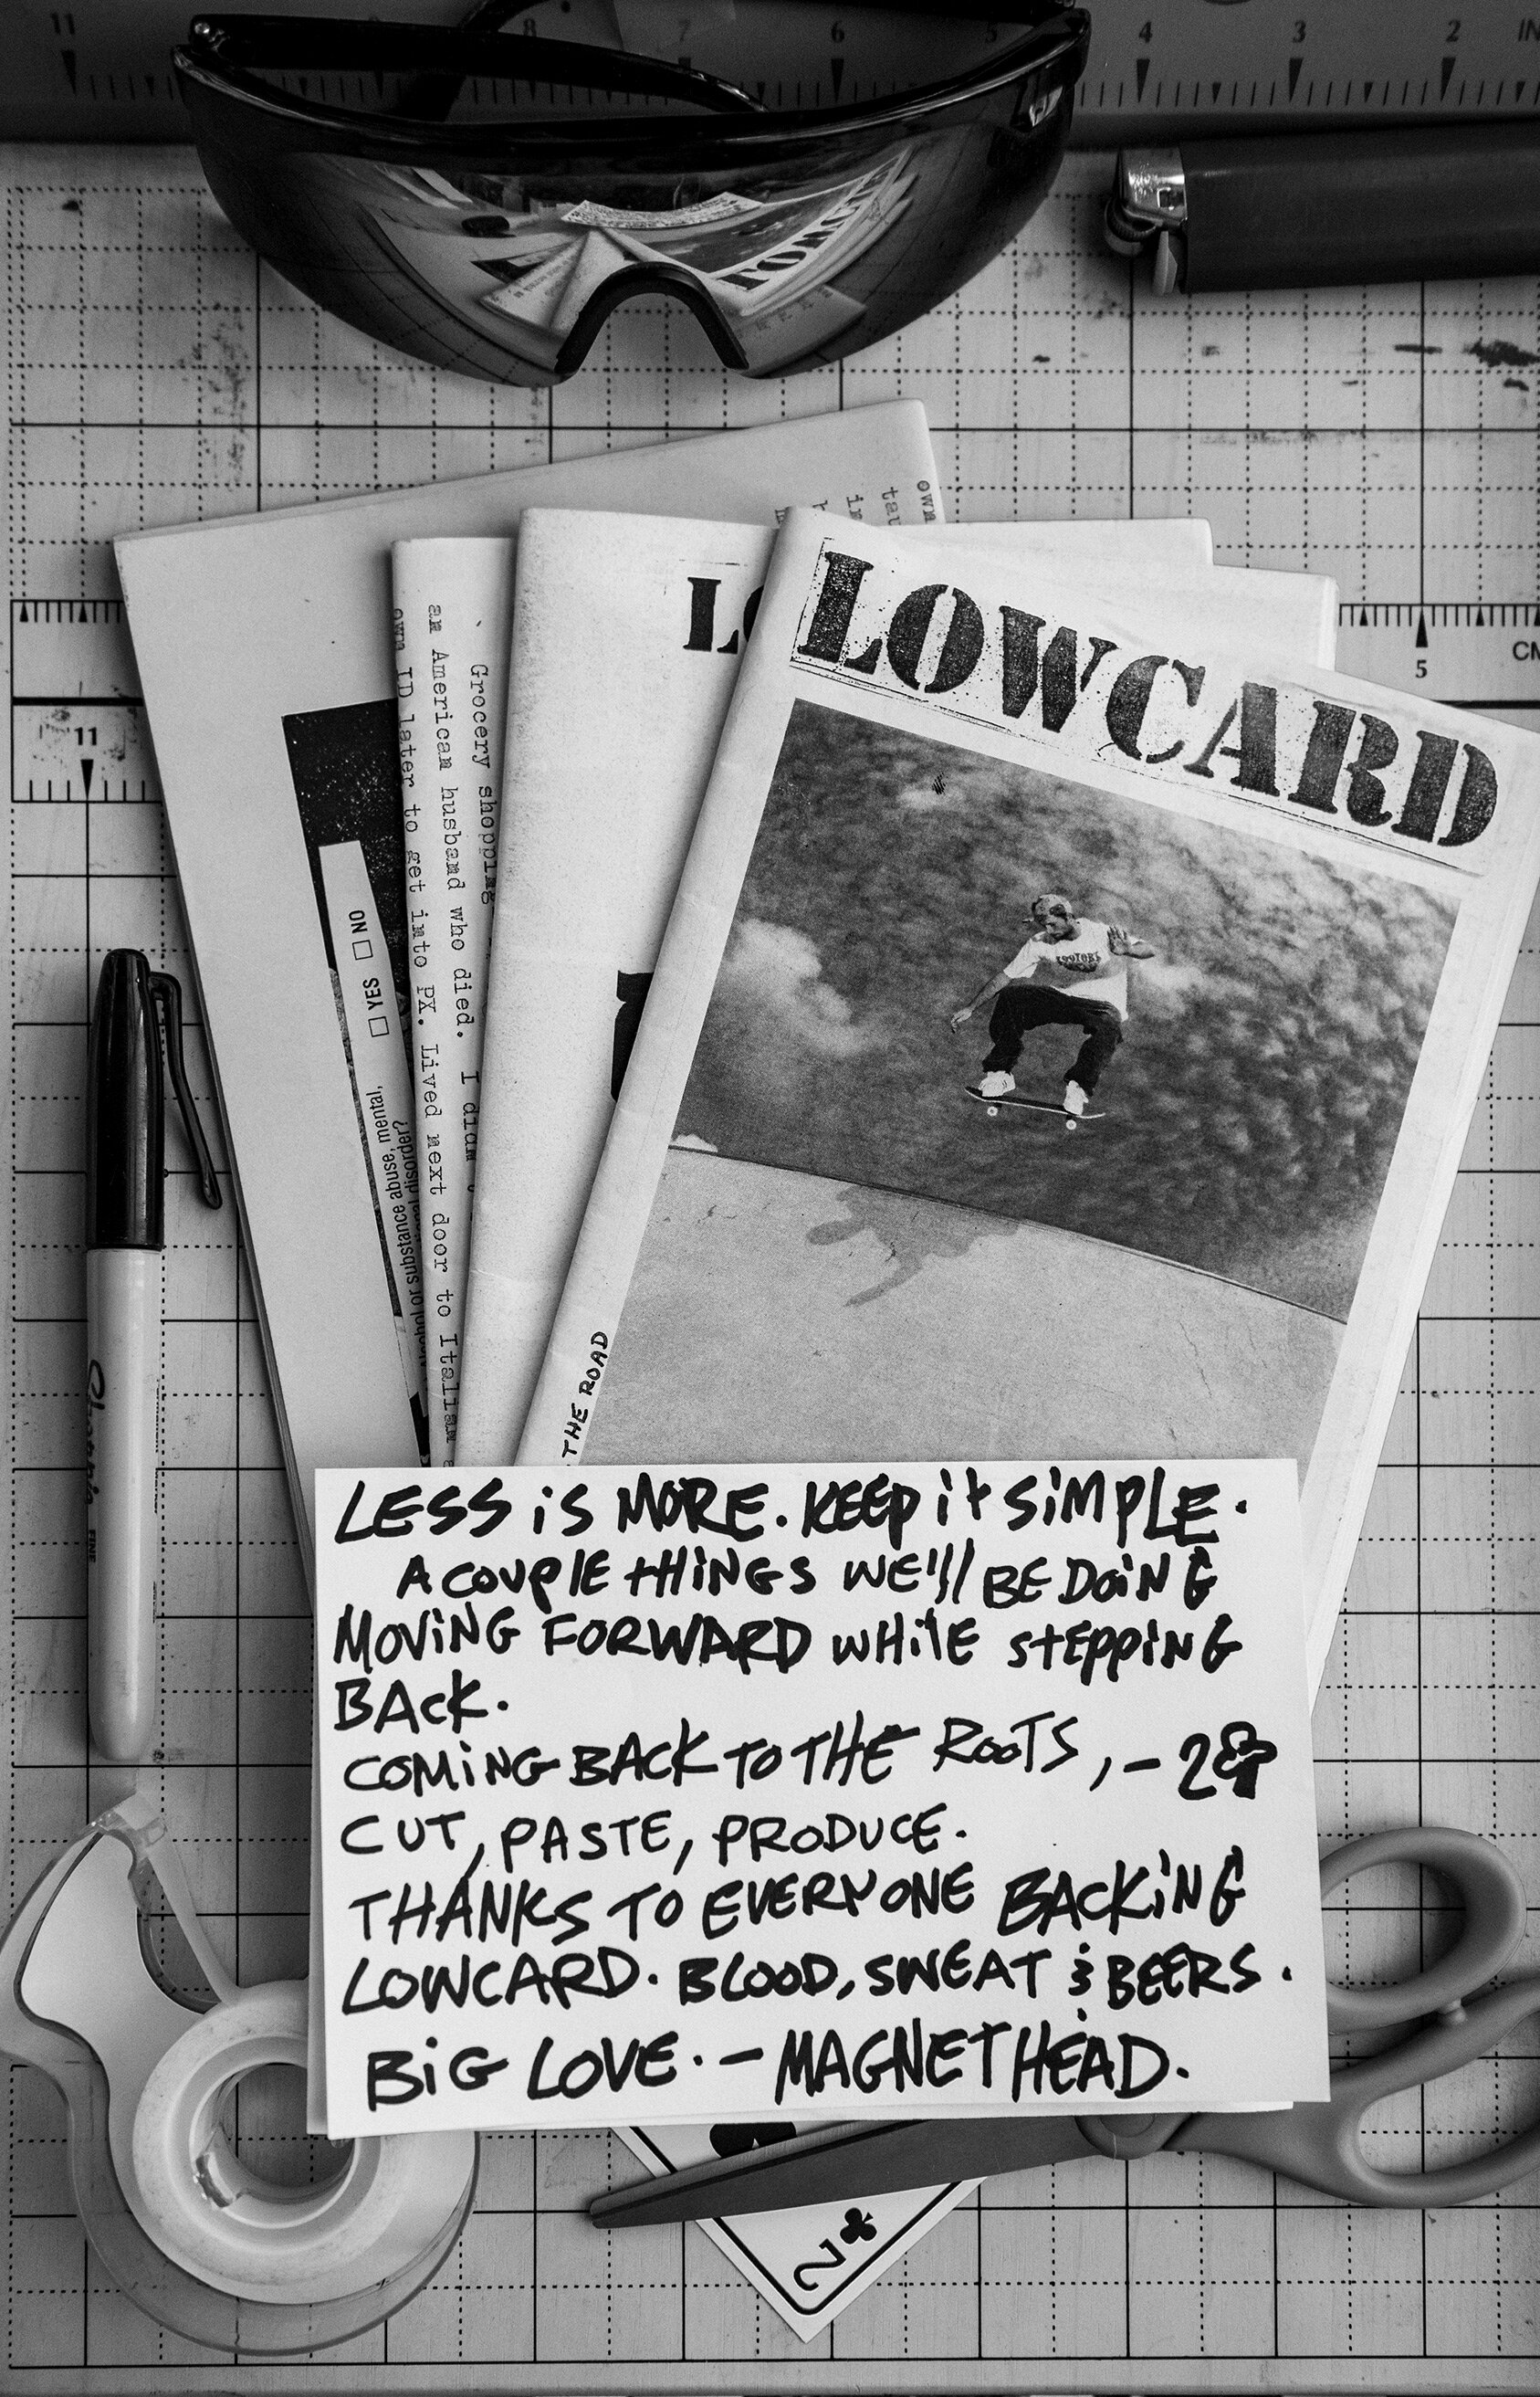 11 8 7 6 5 4 3 2 IN
LOWCARD
own
tau
in
LO
LOWCARD
5
CM
11
Grocery shopping
an American husband who died. I didn't
own ID later to get into PX. Lived next door to Italian
NO
YES
alcohol or substance abuse, mental,
emotional disorder?
ROOTERS
THE ROAD
Sharpie
FINE
LESS iS MORE. KEEP it SiMPLE.
A COUPLE tHiNGS WE'll BE DOiNG
MOViNG FORWARD WHiLE StEPPiNG
BACK.
COMiNG BACK TO THE ROOTS, - 2♣
CUT, PASTE, PRODUCE.
THANKS TO EVERYONE BACKiNG
LOWCARD. BLOOD, SWEAT & BEERS.
BiG LOVE. - MAGNETHEAD.
2♣